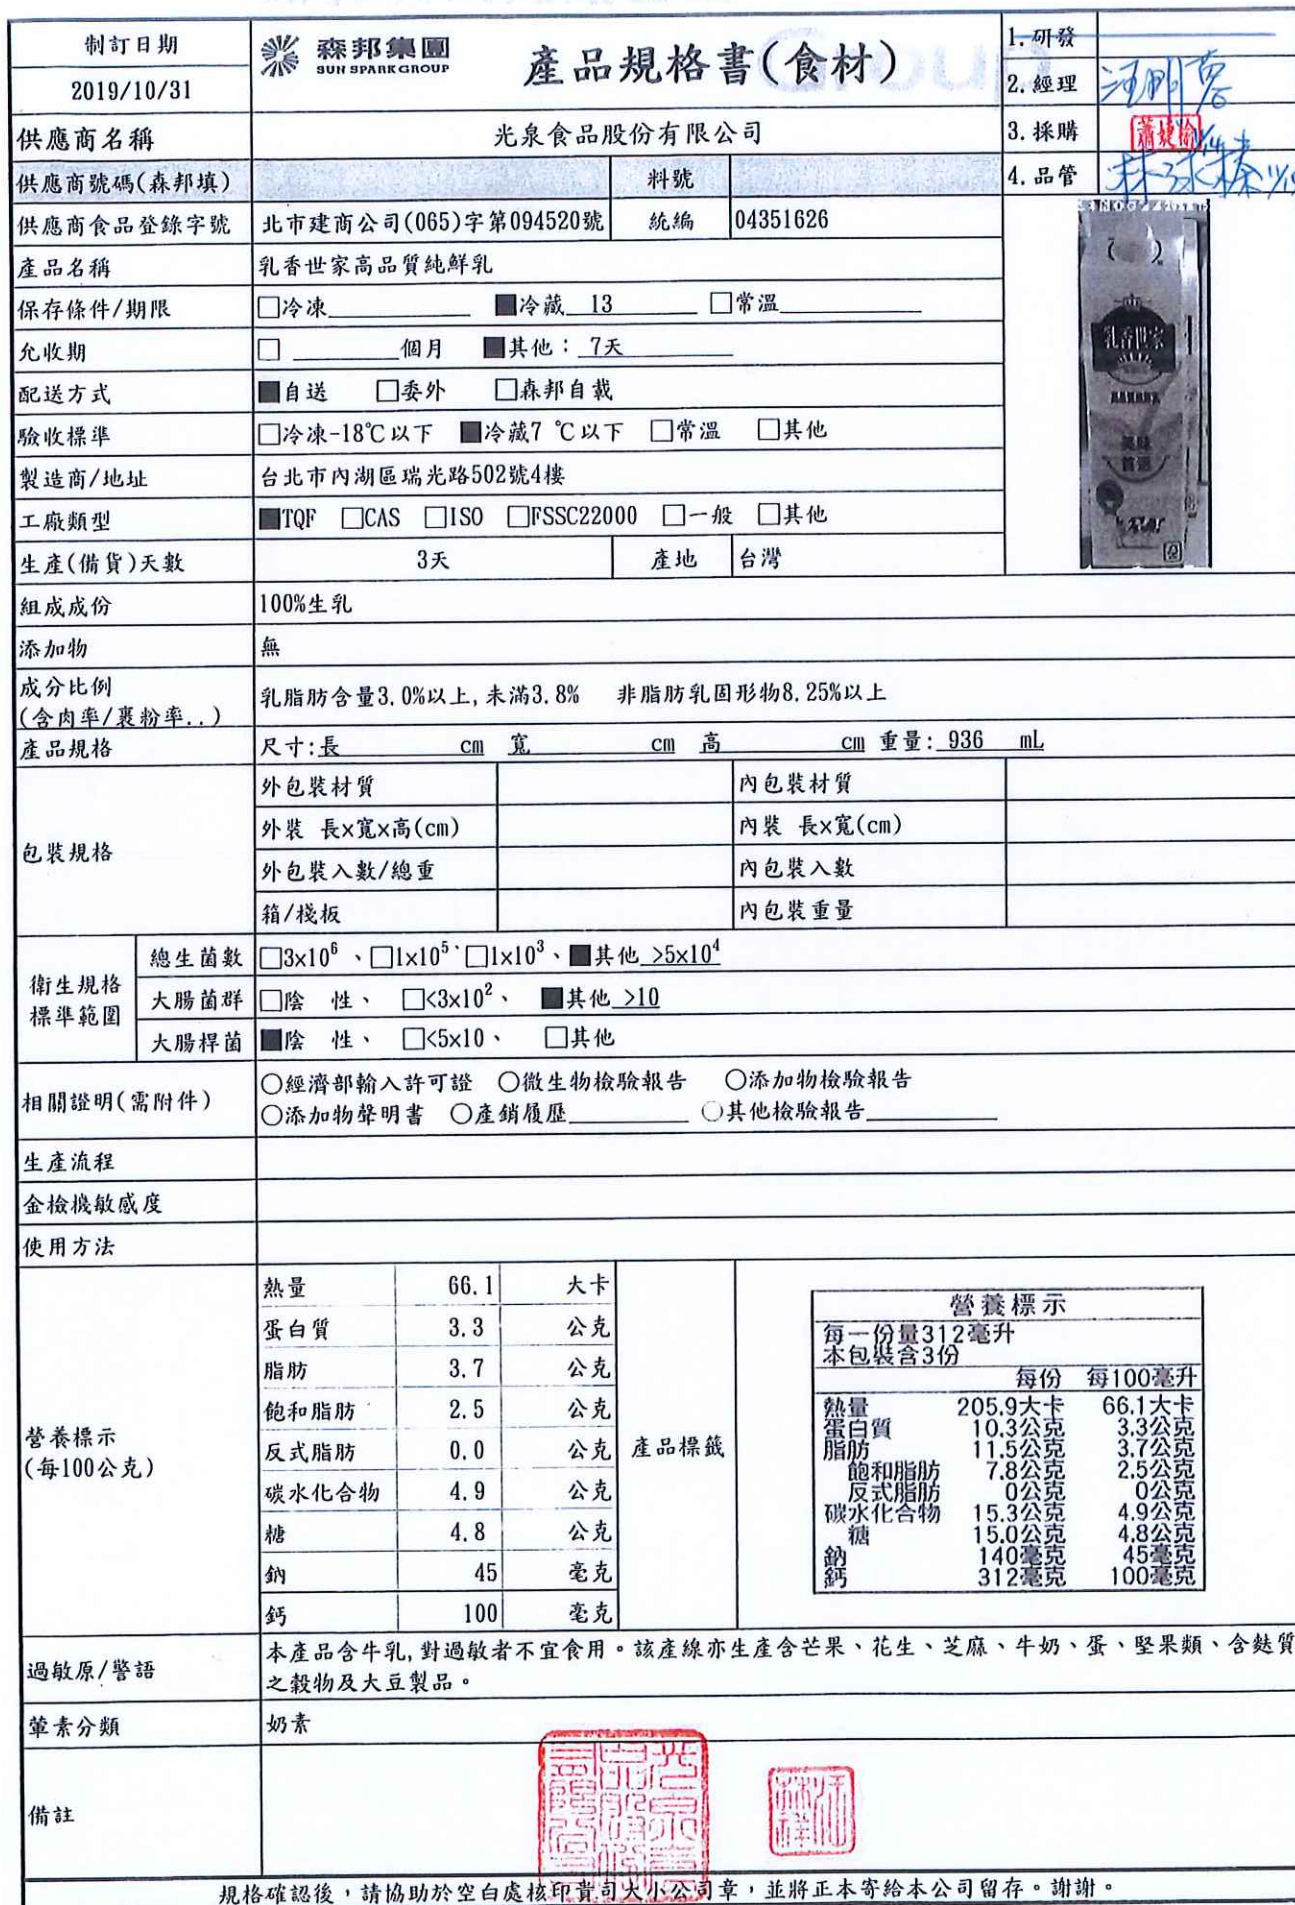 制訂日期
2019/10/31
森邦集團
SUN SPARK GROUP
產品規格書(食材)
1.研發
2.經理
3.採購
4.品管
供應商名稱 光泉食品股份有限公司
供應商號碼(森邦填) 料號
供應商食品登錄字號 北市建商公司(065)字第094520號 統編 04351626
產品名稱 乳香世家高品質純鮮乳
保存條件/期限 □冷凍 ■冷藏 13 □常溫
允收期 □ 個月 ■其他：7天
配送方式 ■自送 □委外 □森邦自載
驗收標準 □冷凍-18℃以下 ■冷藏7 ℃以下 □常溫 □其他
製造商/地址 台北市內湖區瑞光路502號4樓
工廠類型 ■TQF □CAS □ISO □FSSC22000 □一般 □其他
生產(備貨)天數 3天 產地 台灣
乳香世家
美味
首選
組成成份 100%生乳
添加物 無
成分比例
(含肉率/裹粉率..)
乳脂肪含量3.0%以上,未滿3.8% 非脂肪乳固形物8.25%以上
產品規格 尺寸:長 cm 寬 cm 高 cm 重量: 936 mL
包裝規格
外包裝材質 內包裝材質
外裝 長x寬x高(cm) 內裝 長x寬(cm)
外包裝入數/總重 內包裝入數
箱/棧板 內包裝重量
衛生規格
標準範圍
總生菌數 □3x10⁶、□1x10⁵、□1x10³、■其他 >5x10⁴
大腸菌群 □陰 性、 □<3x10²、 ■其他 >10
大腸桿菌 ■陰 性、 □<5x10、 □其他
相關證明(需附件)
○經濟部輸入許可證 ○微生物檢驗報告 ○添加物檢驗報告
○添加物聲明書 ○產銷履歷 ○其他檢驗報告
生產流程
金檢機敏感度
使用方法
營養標示
(每100公克)
熱量 66.1 大卡
蛋白質 3.3 公克
脂肪 3.7 公克
飽和脂肪 2.5 公克
反式脂肪 0.0 公克
碳水化合物 4.9 公克
糖 4.8 公克
鈉 45 毫克
鈣 100 毫克
產品標籤
營養標示
每一份量312毫升
本包裝含3份
每份 每100毫升
熱量 205.9大卡 66.1大卡
蛋白質 10.3公克 3.3公克
脂肪 11.5公克 3.7公克
飽和脂肪 7.8公克 2.5公克
反式脂肪 0公克 0公克
碳水化合物 15.3公克 4.9公克
糖 15.0公克 4.8公克
鈉 140毫克 45毫克
鈣 312毫克 100毫克
過敏原/警語
本產品含牛乳,對過敏者不宜食用。該產線亦生產含芒果、花生、芝麻、牛奶、蛋、堅果類、含麩質
之穀物及大豆製品。
葷素分類 奶素
備註
規格確認後，請協助於空白處核印貴司大小公司章，並將正本寄給本公司留存。謝謝。